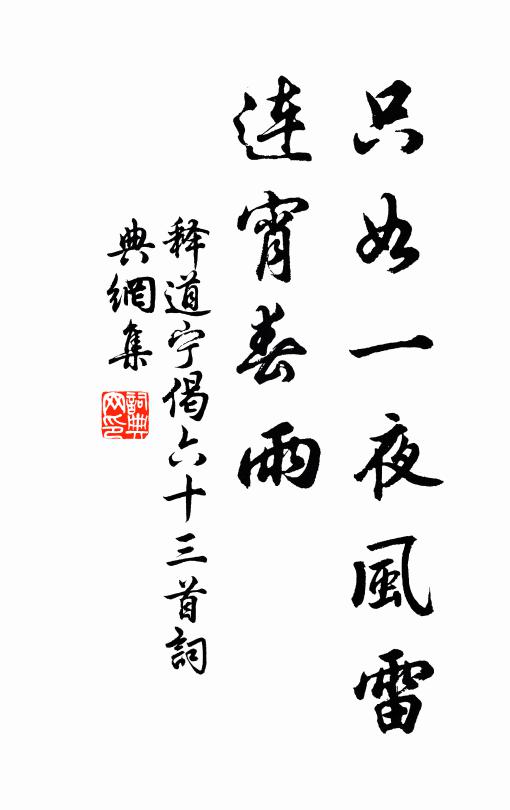 只如一夜風雷
連宵春雨
释道宁偈六十三首詞
典網集
詞典网印